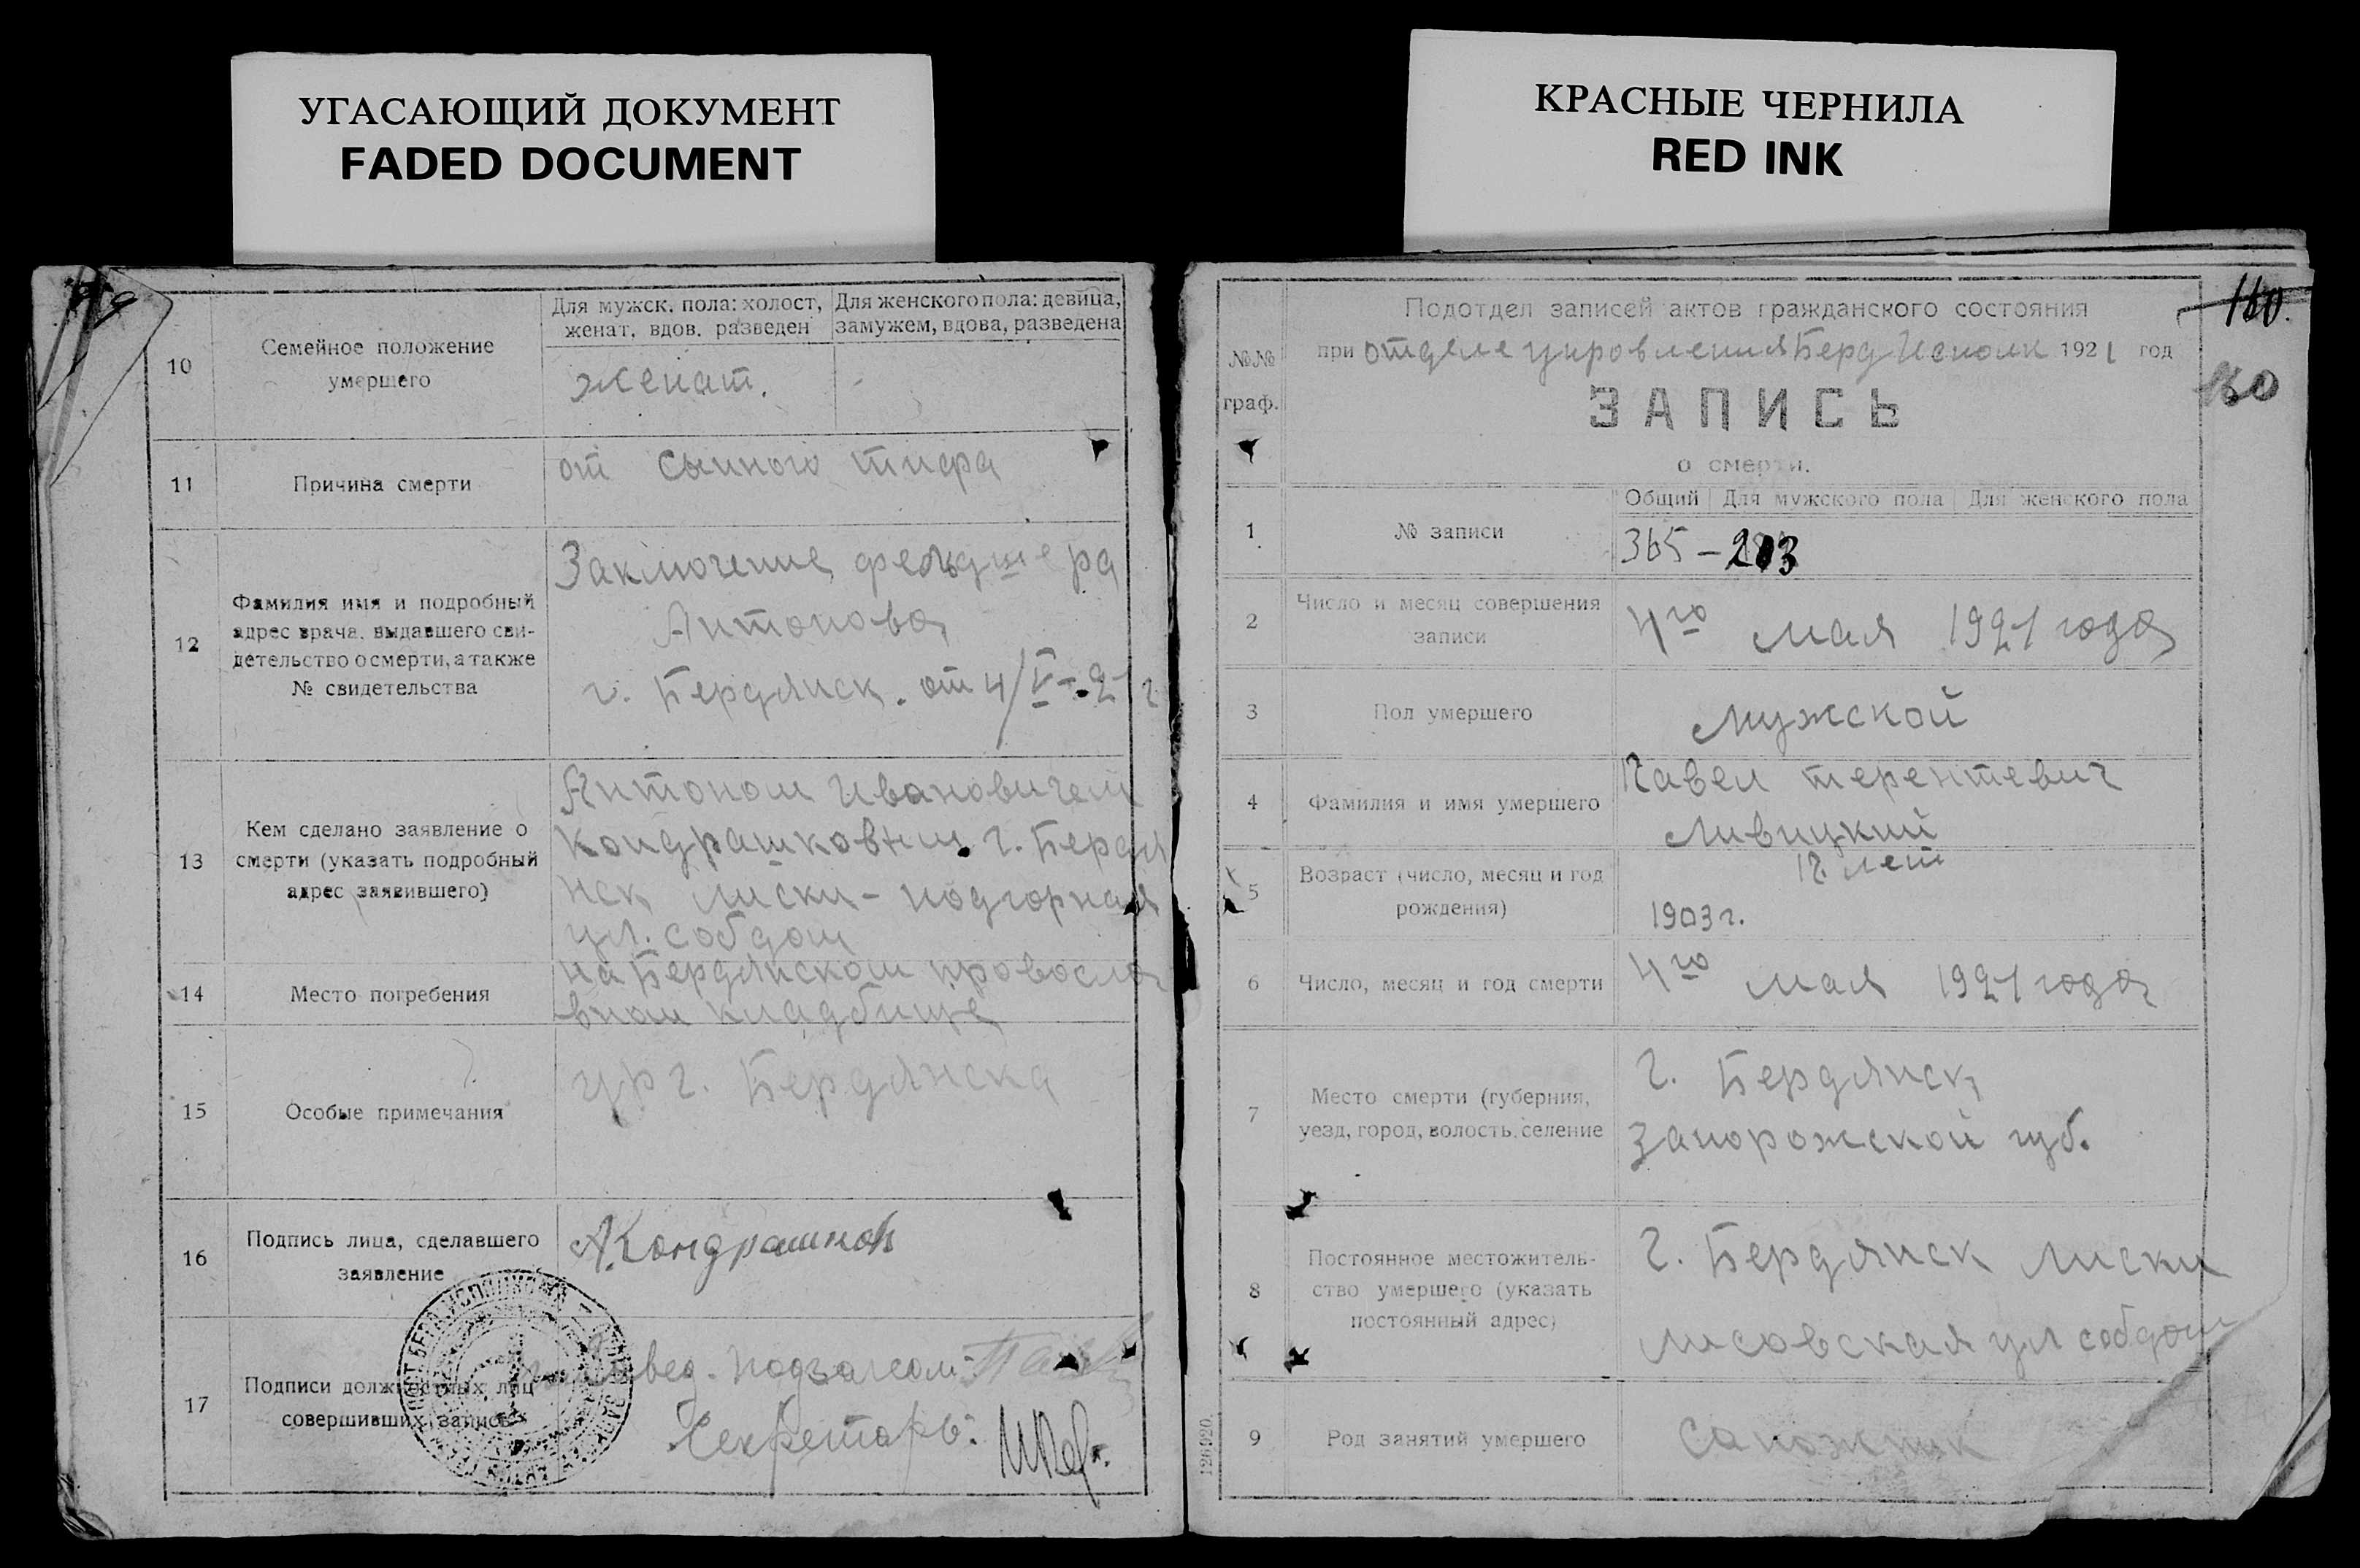 УГАСАЮЩИЙ ДОКУМЕНТ
FADED DOCUMENT
КРАСНЫЕ ЧЕРНИЛА
RED INK
10
Семейное положение
умершего
Для мужск. пола: холост,
женат, вдов. разведен
Для женского пола: девица,
замужем, вдова, разведена
женат.
-
11
Причина смерти
от сыпного тифа
12
Фамилия имя и подробный
адрес врача, выдавшего сви-
детельство о смерти, а также
№ свидетельства
Заключение фельдшера
Антонова
г. Бердянск. от 4/V-21 г
13
Кем сделано заявление о
смерти (указать подробный
адрес заявившего)
Антоном Ивановичем
Кондрашковым. г. Бердя
нск Лиски - подгорная
ул. соб дом
14
Место погребения
на Бердянском провосла
вном кладбище
15
Особые примечания
ур г. Бердянска
16
Подпись лица, сделавшего
заявление
А.Кондрашков
17
Подписи должностных лиц
совершивших запись
Завед. подзагсом
Секретарь:
160.
160
№№
граф.
Подотдел записей актов гражданского состояния
при отделе управления Берд Исполк 1921 год
ЗАПИСЬ
о смерти.
1
№ записи
Общий
Для мужского пола
Для женского пола
365 - 203
2
Число и месяц совершения
записи
4го мая 1921 года
3
Пол умершего
мужской
4
Фамилия и имя умершего
Павел терентевич
Ливицкий
5
Возраст (число, месяц и год
рождения)
лет
1903 г.
6
Число, месяц и год смерти
4го мая 1921 года
7
Место смерти (губерния,
уезд, город, волость, селение
г. Бердянск
Запорожской губ.
8
Постоянное местожитель-
ство умершего (указать
постоянный адрес)
г. Бердянск Лиски
лисовская ул соб дом
9
Род занятий умершего
сапожник
126920.